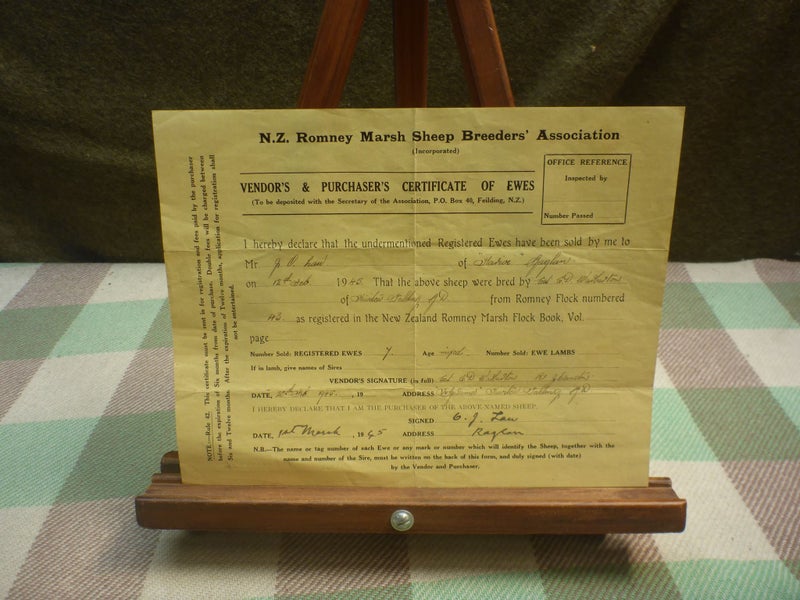 N.Z. Romney Marsh Sheep Breeders' Association
(Incorporated)
VENDOR'S & PURCHASER'S CERTIFICATE OF EWES
(To be deposited with the Secretary of the Association, P.O. Box 40, Feilding, N.Z.)
OFFICE REFERENCE
Inspected by
Number Passed
I hereby declare that the undermentioned Registered Ewes have been sold by me to
Mr. of Raglan
on 12th Feb. 1945 That the above sheep were bred by
of from Romney Flock numbered
as registered in the New Zealand Romney Marsh Flock Book, Vol.
page
Number Sold: REGISTERED EWES 7. Age Number Sold: EWE LAMBS
If in lamb, give names of Sires
VENDOR'S SIGNATURE (in full)
DATE, 1945, 19 ADDRESS
I HEREBY DECLARE THAT I AM THE PURCHASER OF THE ABOVE-NAMED SHEEP.
SIGNED Law
DATE, 1st March, 1945 ADDRESS Raglan
N.B.—The name or tag number of each Ewe or any mark or number which will identify the Sheep, together with the
name and number of the Sire, must be written on the back of this form, and duly signed (with date)
by the Vendor and Purchaser.
NOTE.—Rule 42. This certificate must be sent in for registration and fees paid by the purchaser
before the expiration of Six months from date of purchase. Double fees will be charged between
Six and Twelve months. After the expiration of Twelve months, application for registration shall
not be entertained.